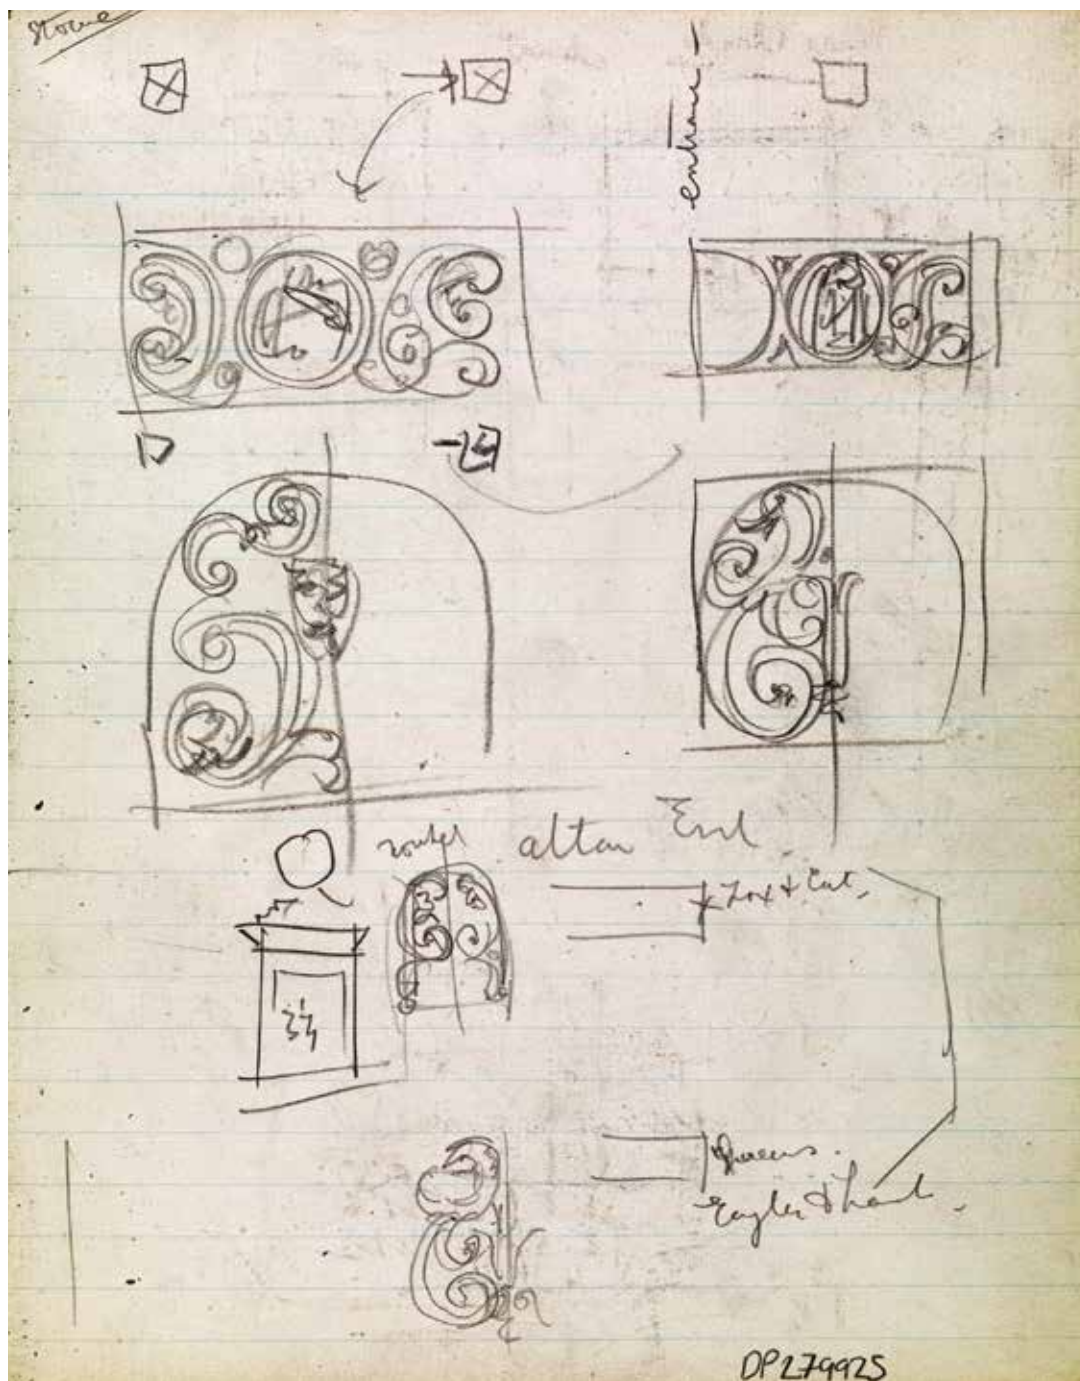 Stowe
entrance
altar End
Fox & Cat.
Queens.
Eagles &
DP279925